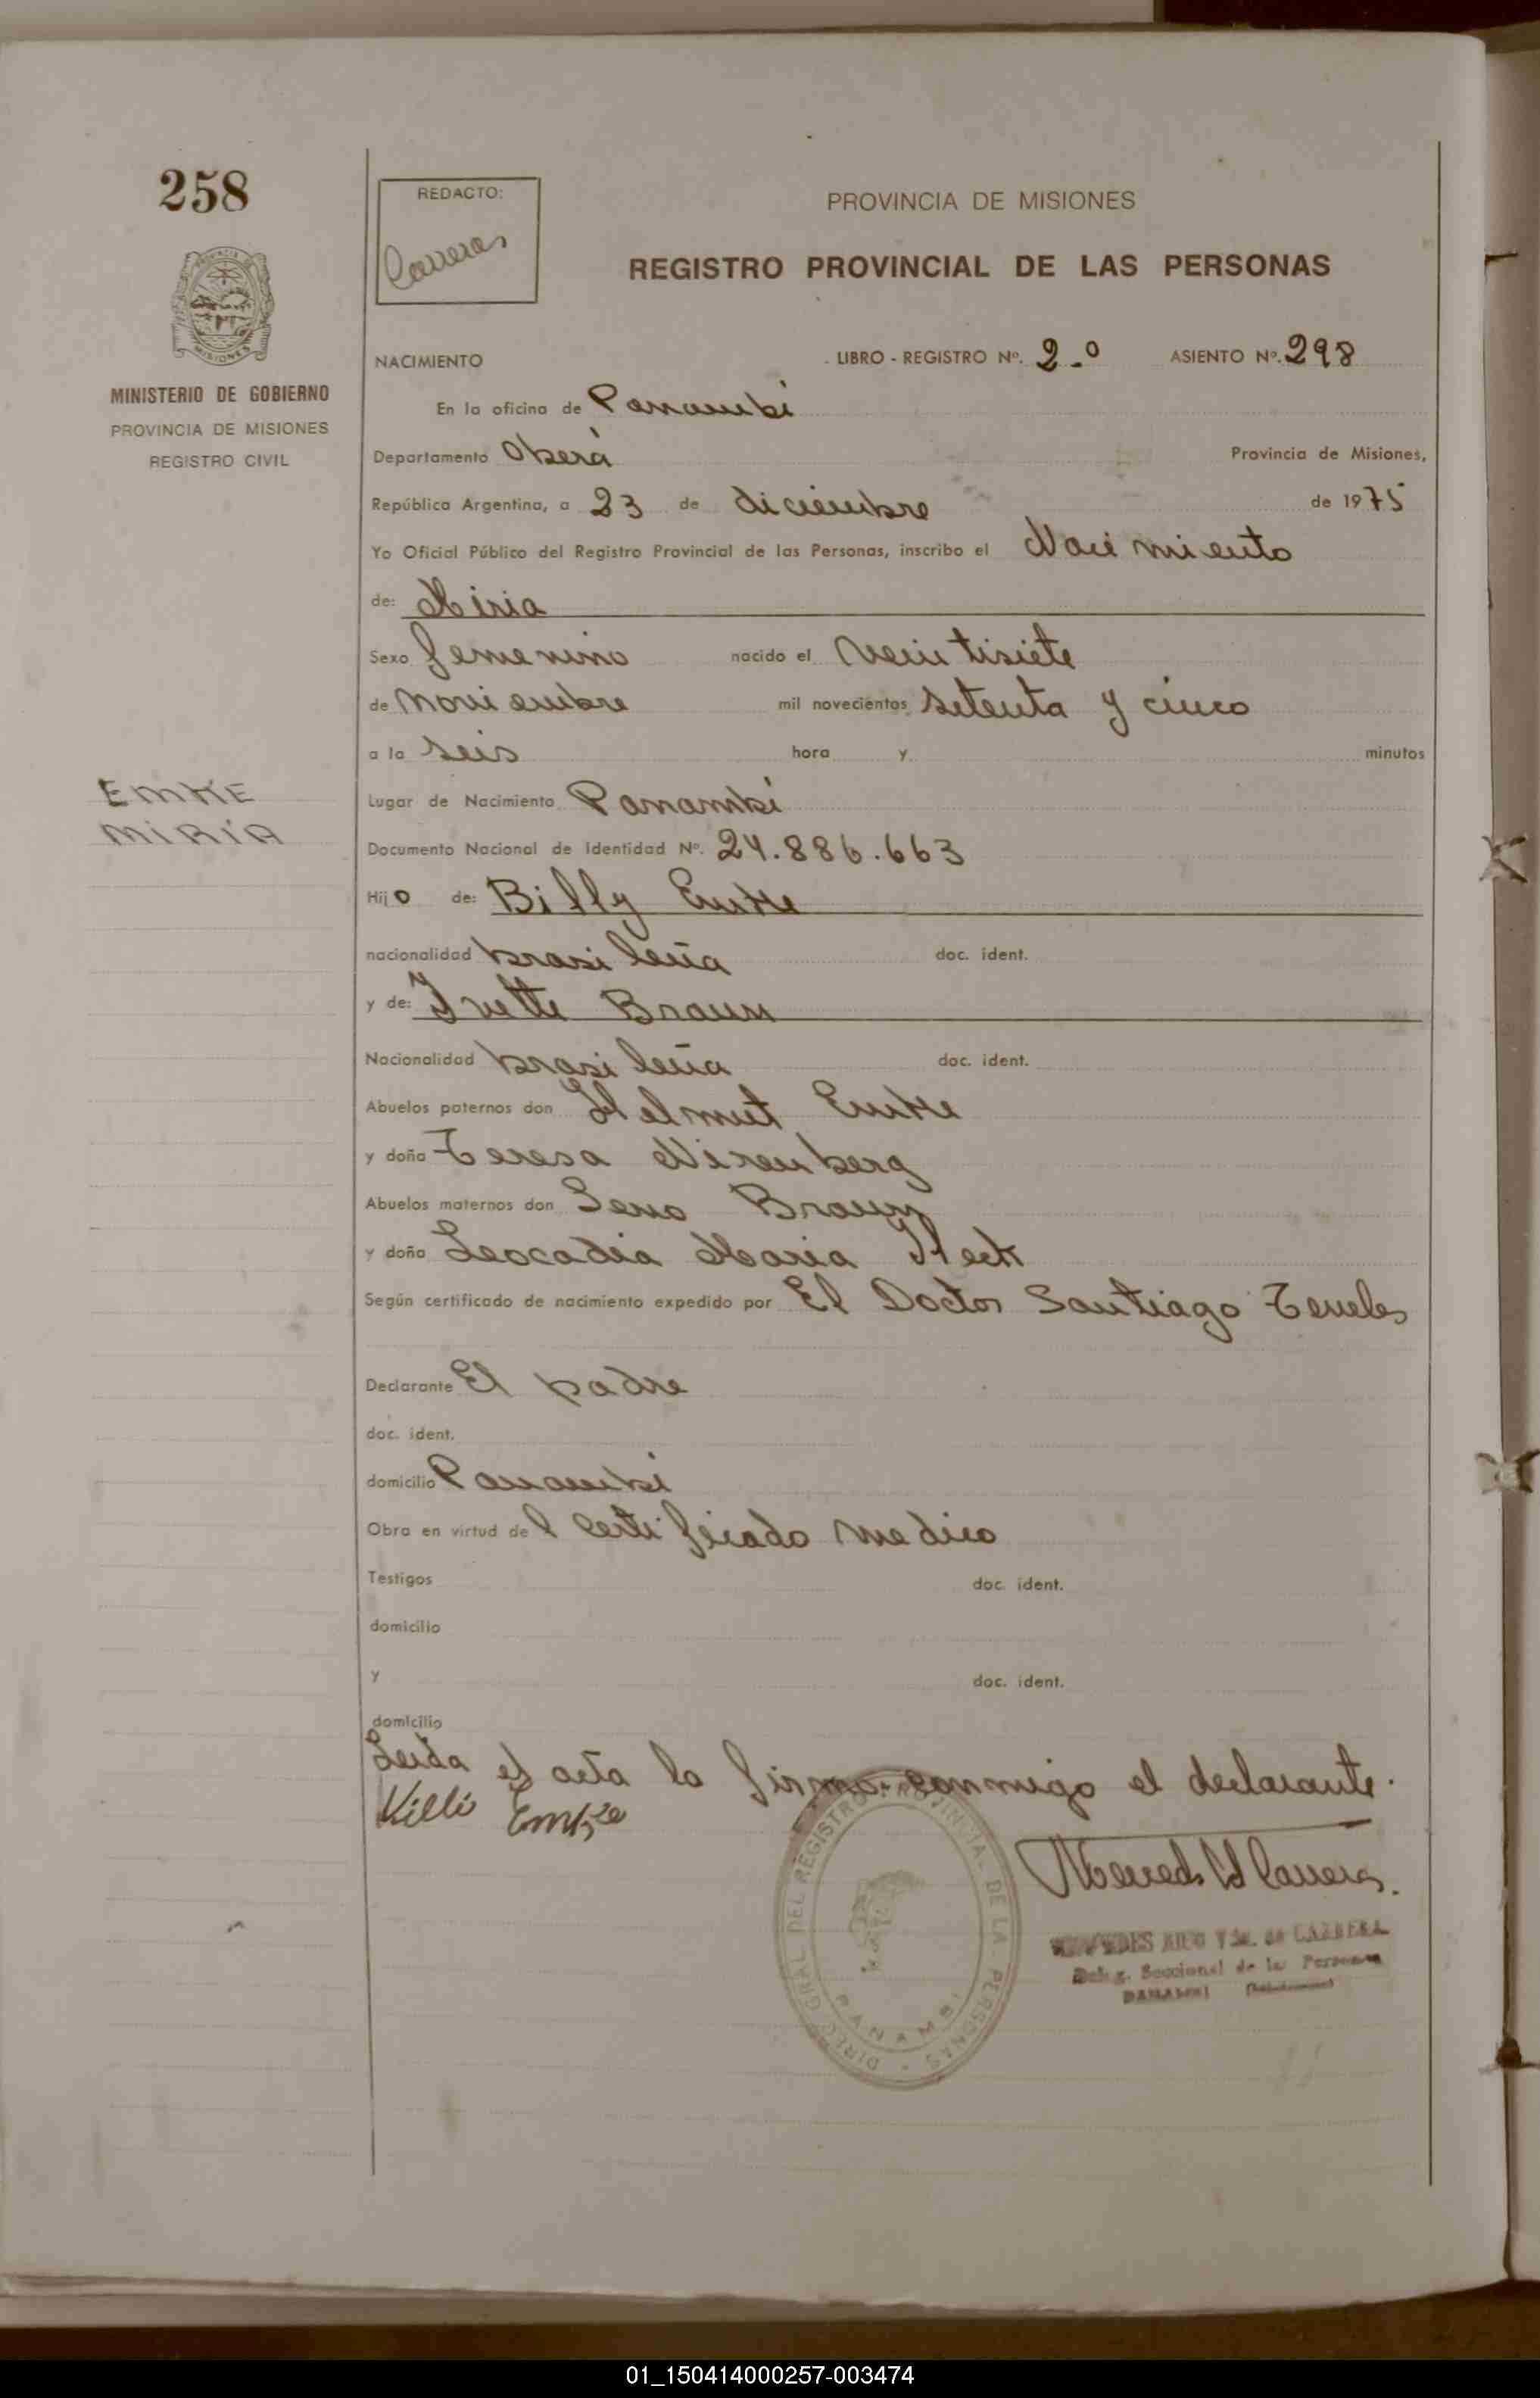 258
REDACTO:
Carreras
PROVINCIA DE MISIONES
REGISTRO PROVINCIAL DE LAS PERSONAS
MISIONES
MINISTERIO DE GOBIERNO
PROVINCIA DE MISIONES
REGISTRO CIVIL
NACIMIENTO LIBRO - REGISTRO Nº. 2-º ASIENTO Nº. 298
En la oficina de Panambi
Departamento Oberá Provincia de Misiones,
República Argentina, a 23 de diciembre de 1975
Yo Oficial Público del Registro Provincial de las Personas, inscribo el Nacimiento
de: Miria
Sexo femenino nacido el veintisiete
de noviembre mil novecientos setenta y cinco
a la seis hora y minutos
EMKE
MIRIA
Lugar de Nacimiento Panambi
Documento Nacional de Identidad Nº. 24.886.663
Hijo de: Billy Emke
nacionalidad brasileña doc. ident.
y de: Ivette Braun
Nacionalidad brasileña doc. ident.
Abuelos paternos don Helmut Emke
y doña Teresa Nirenberg
Abuelos maternos don Seno Braun
y doña Leocadia Maria Heck
Según certificado de nacimiento expedido por El Doctor Santiago
Declarante El padre
doc. ident.
domicilio Panambi
Obra en virtud del certificado medico
Testigos doc. ident.
domicilio
y doc. ident.
domicilio
Leida el acta la firma conmigo el declarante.
Willi Emke
DIREC. GRAL DEL REGISTRO PROVINCIAL DE LA PERSONAS
PANAMBI
Mercedes Carrera.
Vda. de CARRERA
Seccional de las Personas
PANAMBI
01_150414000257-003474